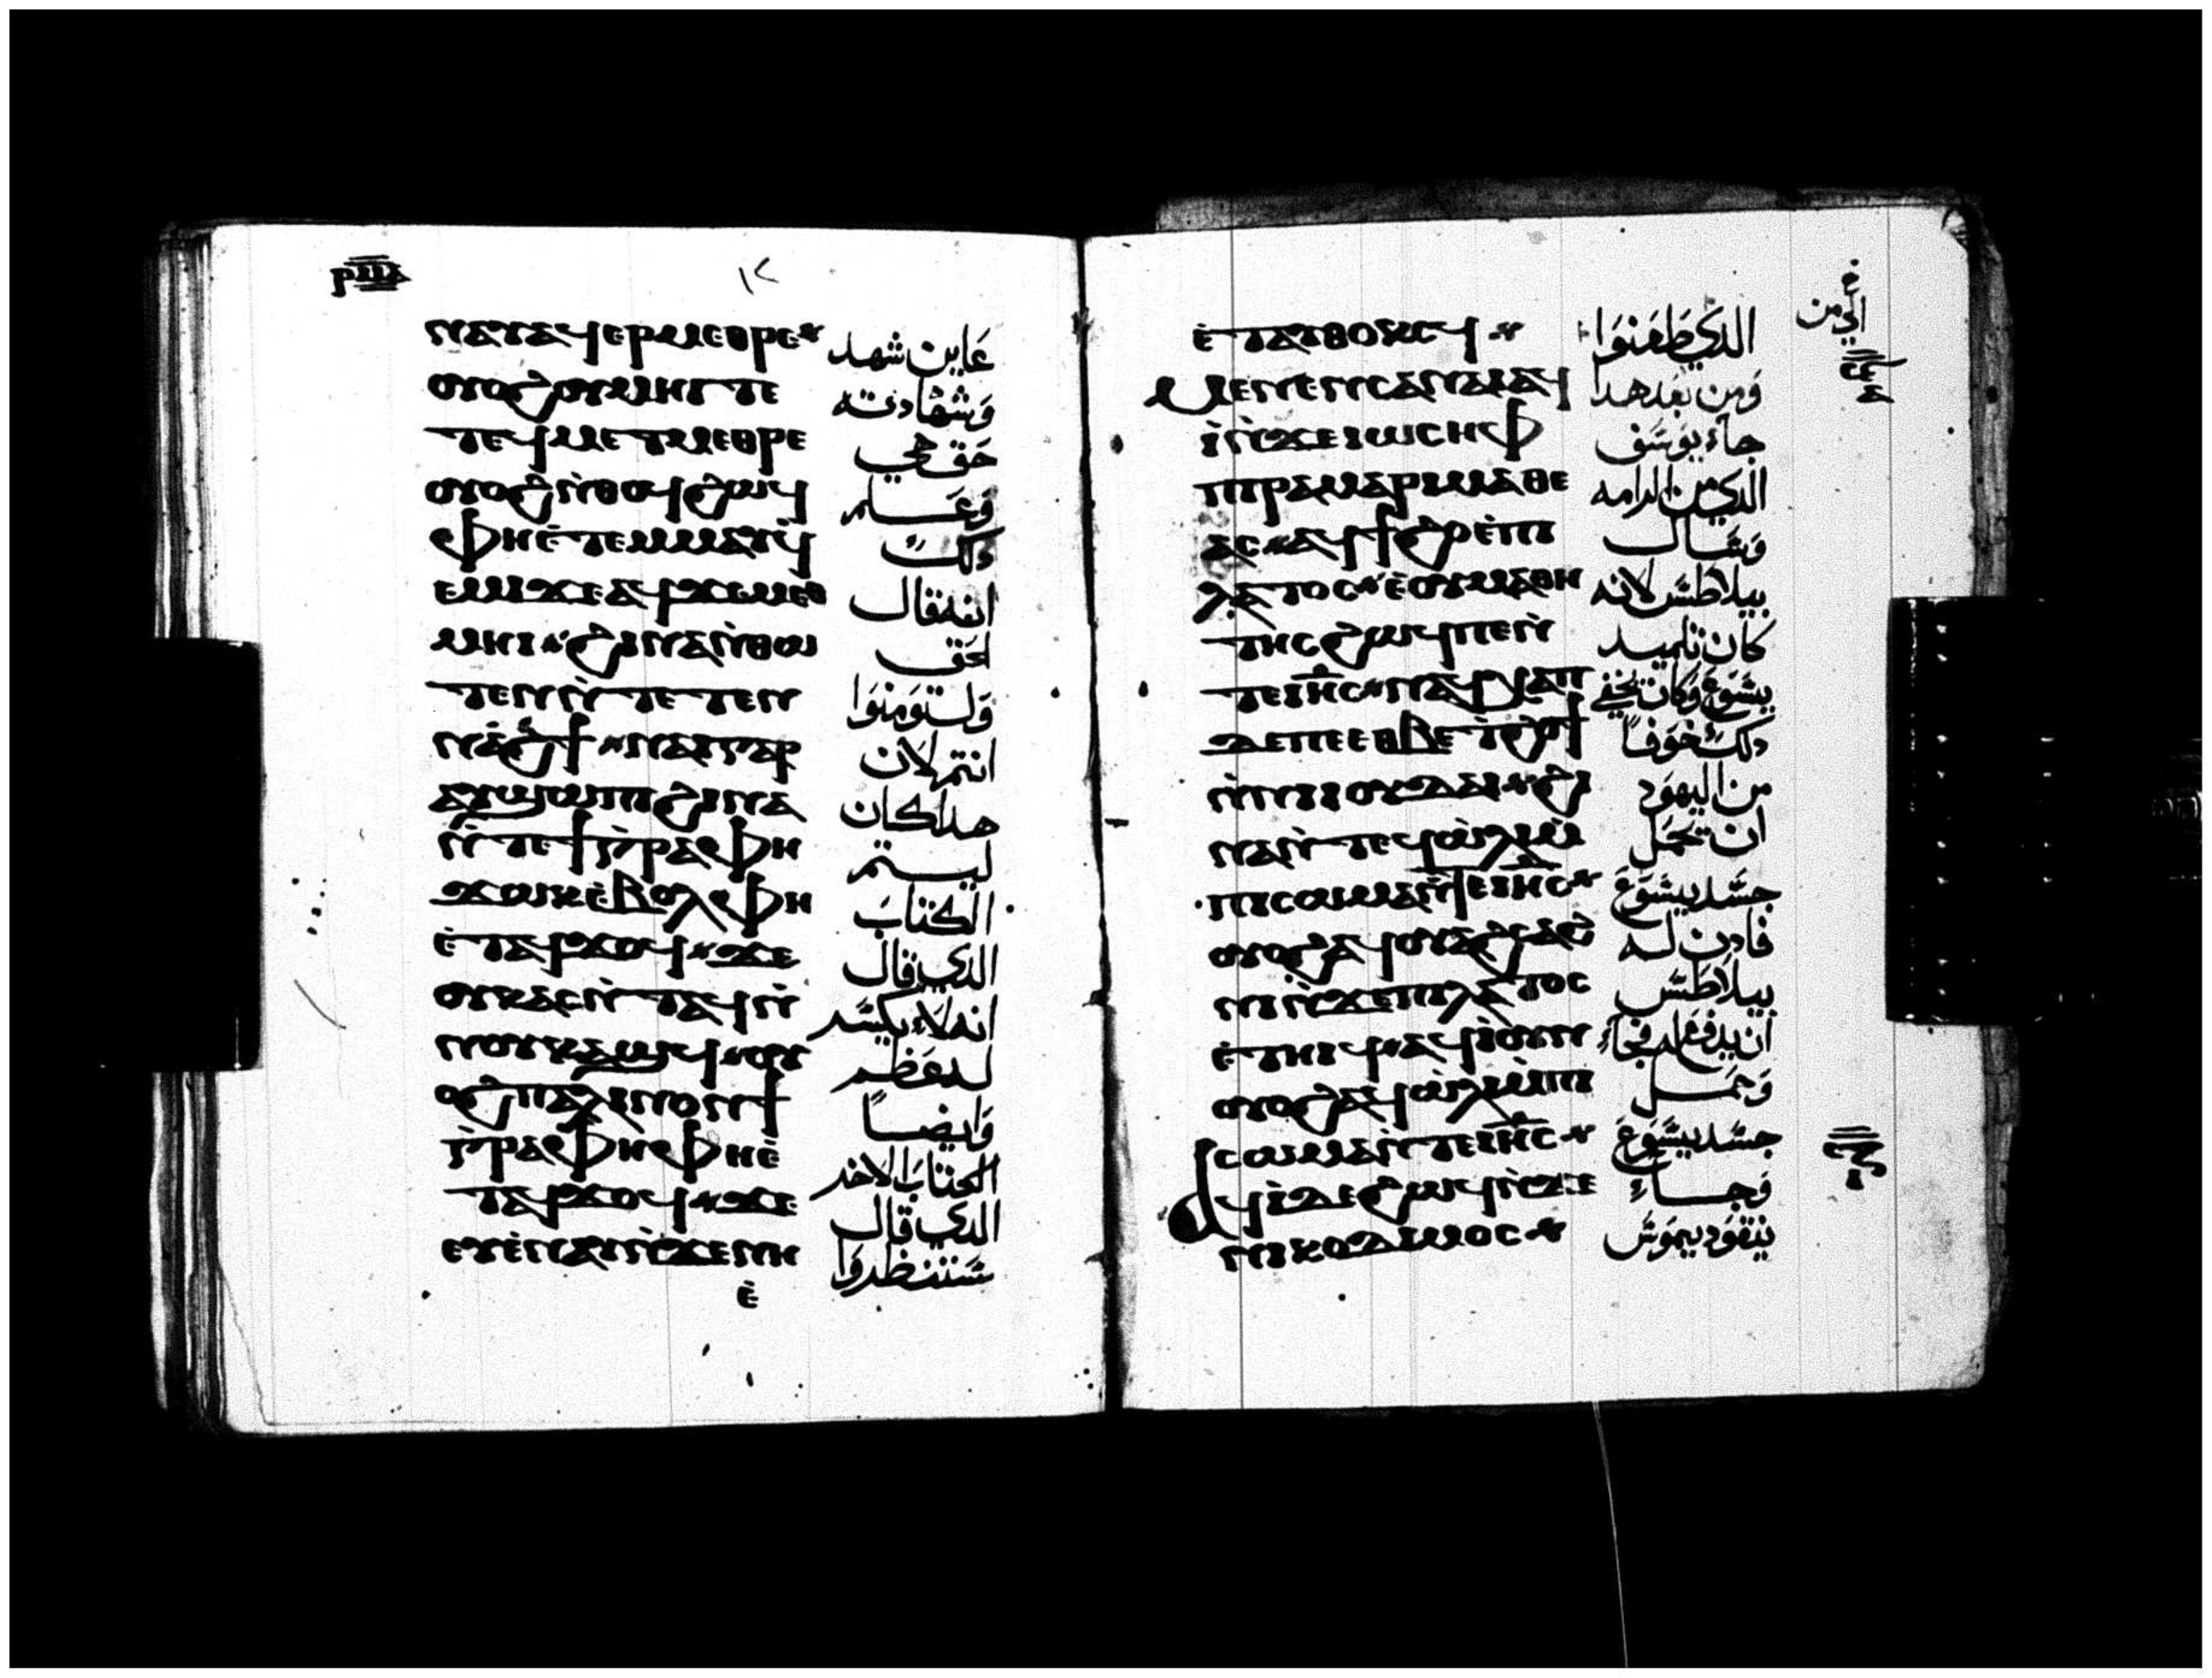 ⲛⲁⲩⲁϥⲉⲣⲙⲉⲑⲣⲉ عاين شهد
ⲟⲩⲟϩⲟⲩⲙⲏⲓⲧⲉ وشهادته
ⲧⲉϥⲙⲉⲧⲙⲉⲑⲣⲉ حق هي
ⲟⲩⲟϩⲛ̀ⲑⲟϥϩⲱϥ وعلم
ⲫⲏⲉ̀ⲧⲉⲙⲙⲁⲩϥ̀ دلك
ⲉⲙⲓϫⲉⲁϥϫⲉⲙⲉⲑ انه قال
ⲙⲏⲓ ϩⲓⲛⲁⲛ̀ⲑⲱ الحق
ⲧⲉⲛⲛ̀ⲧⲉⲧⲉⲛ ولتومنوا
ⲛⲁϩϯ ⲛⲁⲓⲅⲁⲣ انتم لان
ⲁⲩϣⲱⲡⲓϩⲓⲛⲁ هدا كان
ⲛ̀ⲧⲉϯⲅ̀ⲣⲁⲫⲏ ليتم
ϫⲱⲕⲉ̀ⲃⲟⲗⲫⲏ الكتاب
ⲉ̀ⲧⲁϥϫⲟϥ ϫⲉ الدي قال
ⲟⲩⲕⲁⲥⲛ̀ⲧⲁϥⲛ̀ انه لا يكسر
ⲛⲟⲩⲕⲁϣϥ ⲟⲩ له عظم
ⲟϩⲡⲁⲗⲓⲛⲟⲛϯ وايضاً
ⲅ̀ⲣⲁⲫⲏⲫⲏⲉ̀ الكتاب الاخر
ⲧⲁϥϫⲟϥ ϫⲉ الدي قال
ⲉⲩⲉ̀ⲛⲁⲩⲛ̀ϫⲉⲛⲏ سينظروا
ⲉ̀
ⲉ̀ⲧⲁⲩⲑⲟⲕⲥϥ الدي طعنوا
ⲙⲉⲛⲉⲛⲥⲁⲛⲁⲓⲁϥ ومن بعد هدا
ⲓ̀ⲛ̀ϫⲉⲓⲱⲥⲏⲫ جاء يوسف
ⲡⲓⲣⲁⲙⲁⲣⲓⲙⲁⲑⲉ الدي من الرامه
ⲁⲥ ⲁϥϯϩⲟⲉ̀ⲡⲓ وسال
ⲗⲁⲧⲟⲥ ⲉ̀ⲟⲩⲙⲁⲑⲏ بيلاطس لانه
ⲧⲏⲥϩⲱϥⲡⲉⲛ̀ كان تلميد
ⲧⲉⲓⲏⲥ ⲛⲁϥϩⲏⲡ يسوع وكان يخفي
ⲇⲉⲡⲉⲉⲑⲃⲉⲧ̀ϩⲟϯ دلك خوفاً
ⲛ̀ⲛⲓⲓⲟⲩⲇⲁⲓ ϩⲓ من اليهود
ⲛⲁⲛ̀ⲧⲉϥⲱ̀ⲗⲓⲙ̀ ان يحمل
ⲡⲓⲥⲱⲙⲁⲛ̀ⲧⲉⲓⲏⲥ جسد يسوع
ⲟⲩⲟϩⲁϥⲟⲩⲁϩⲥⲁϩ فادن له
ⲛⲓⲛ̀ϫⲉⲡⲓⲗⲁⲧⲟⲥ بيلاطس
ⲉ̀ⲧⲏⲓϥ ⲁϥⲓ̀ⲟⲩⲛ ان يدفع له فجاء
ⲟⲩⲟϩⲁϥⲱ̀ⲗⲓⲙ̀ⲡⲓ وحمل
ⲥⲱⲙⲁⲛ̀ⲧⲉⲓⲏⲥ جسد يسوع
ⲁϥⲓ̀ⲇⲉϩⲱϥⲛ̀ϫⲉ فجاء
ⲛⲓⲕⲟⲇⲓⲙⲟⲥ نيقوديموس